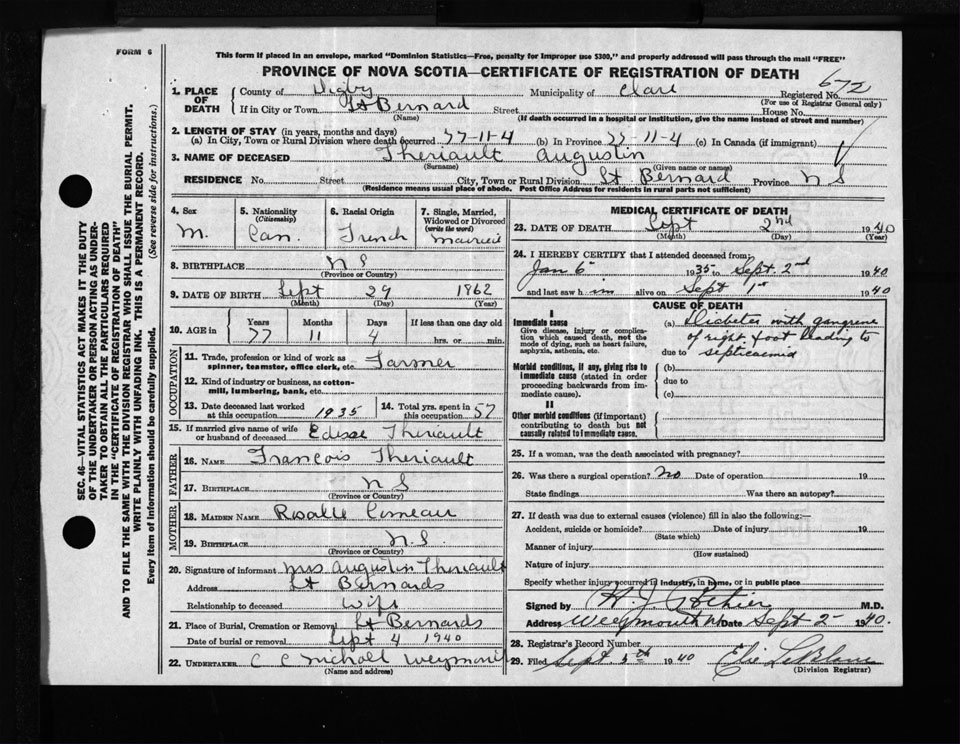 FORM 6
This form if placed in an envelope, marked "Dominion Statistics—Free, penalty for improper use $300," and properly addressed will pass through the mail "FREE"
PROVINCE OF NOVA SCOTIA—CERTIFICATE OF REGISTRATION OF DEATH
672
1. PLACE OF DEATH
County of Digby Municipality of Clare Registered No.
(For use of Registrar General only)
If in City or Town St Bernard Street House No.
(Name) (If death occurred in a hospital or institution, give the name instead of street and number)
2. LENGTH OF STAY (in years, months and days)
(a) In City, Town or Rural Division where death occurred 77-11-4 (b) In Province 77-11-4 (c) In Canada (if immigrant)
3. NAME OF DECEASED Theriault Augustin
(Surname) (Given name or names)
RESIDENCE No. Street City, Town or Rural Division St Bernard Province N S
(Residence means usual place of abode. Post Office Address for residents in rural parts not sufficient)
4. Sex
M.
5. Nationality
(Citizenship)
Can.
6. Racial Origin
French
7. Single, Married, Widowed or Divorced
(write the word)
Married
8. BIRTHPLACE N S
(Province or Country)
9. DATE OF BIRTH Sept 29 1862
(Month) (Day) (Year)
10. AGE in
Years Months Days If less than one day old
77 11 4 hrs. or min.
OCCUPATION
11. Trade, profession or kind of work as spinner, teamster, office clerk, etc. Farmer
12. Kind of industry or business, as cotton-mill, lumbering, bank, etc.
13. Date deceased last worked at this occupation 1935
14. Total yrs. spent in this occupation 57
15. If married give name of wife or husband of deceased Theriault
FATHER
16. NAME Francois Theriault
17. BIRTHPLACE N S
(Province or Country)
MOTHER
18. MAIDEN NAME Rosalie Comeau
19. BIRTHPLACE N.S.
(Province or Country)
20. Signature of informant Mrs Augustin Theriault
Address St Bernards
Relationship to deceased Wife
21. Place of Burial, Cremation or Removal St Bernards
Date of burial or removal Sept 4 1940
22. UNDERTAKER C C Nicholl Weymouth
(Name and address)
MEDICAL CERTIFICATE OF DEATH
23. DATE OF DEATH Sept 2nd 1940
(Month) (Day) (Year)
24. I HEREBY CERTIFY that I attended deceased from
Jan 6 1935 to Sept. 2nd 1940
and last saw him alive on Sept 1st 1940
CAUSE OF DEATH
I
Immediate cause
Give disease, injury or complication which caused death, not the mode of dying, such as heart failure, asphyxia, asthenia, etc.
(a) Diabetes with gangrene
of right foot leading to
due to septicaemia
Morbid conditions, if any, giving rise to immediate cause (stated in order proceeding backwards from immediate cause).
(b)
due to
(c)
II
Other morbid conditions (if important) contributing to death but not causally related to immediate cause.
25. If a woman, was the death associated with pregnancy?
26. Was there a surgical operation? No Date of operation 19
State findings Was there an autopsy?
27. If death was due to external causes (violence) fill in also the following:—
Accident, suicide or homicide? Date of injury 19
(State which)
Manner of injury
(How sustained)
Nature of injury
Specify whether injury occurred in industry, in home, or in public place
Signed by H. J. Pothier M.D.
Address Weymouth N Date Sept 2 1940.
28. Registrar's Record Number
29. Filed Sept. 5th 1940 Elie LeBlanc
(Division Registrar)
SEC. 46—VITAL STATISTICS ACT MAKES IT THE DUTY
OF THE UNDERTAKER OR PERSON ACTING AS UNDER-
TAKER TO OBTAIN ALL THE PARTICULARS REQUIRED
IN THE "CERTIFICATE OF REGISTRATION OF DEATH"
AND TO FILE THE SAME WITH THE DIVISION REGISTRAR WHO SHALL ISSUE THE BURIAL PERMIT.
WRITE PLAINLY WITH UNFADING INK. THIS IS A PERMANENT RECORD.
Every item of Information should be carefully supplied. (See reverse side for instructions.)